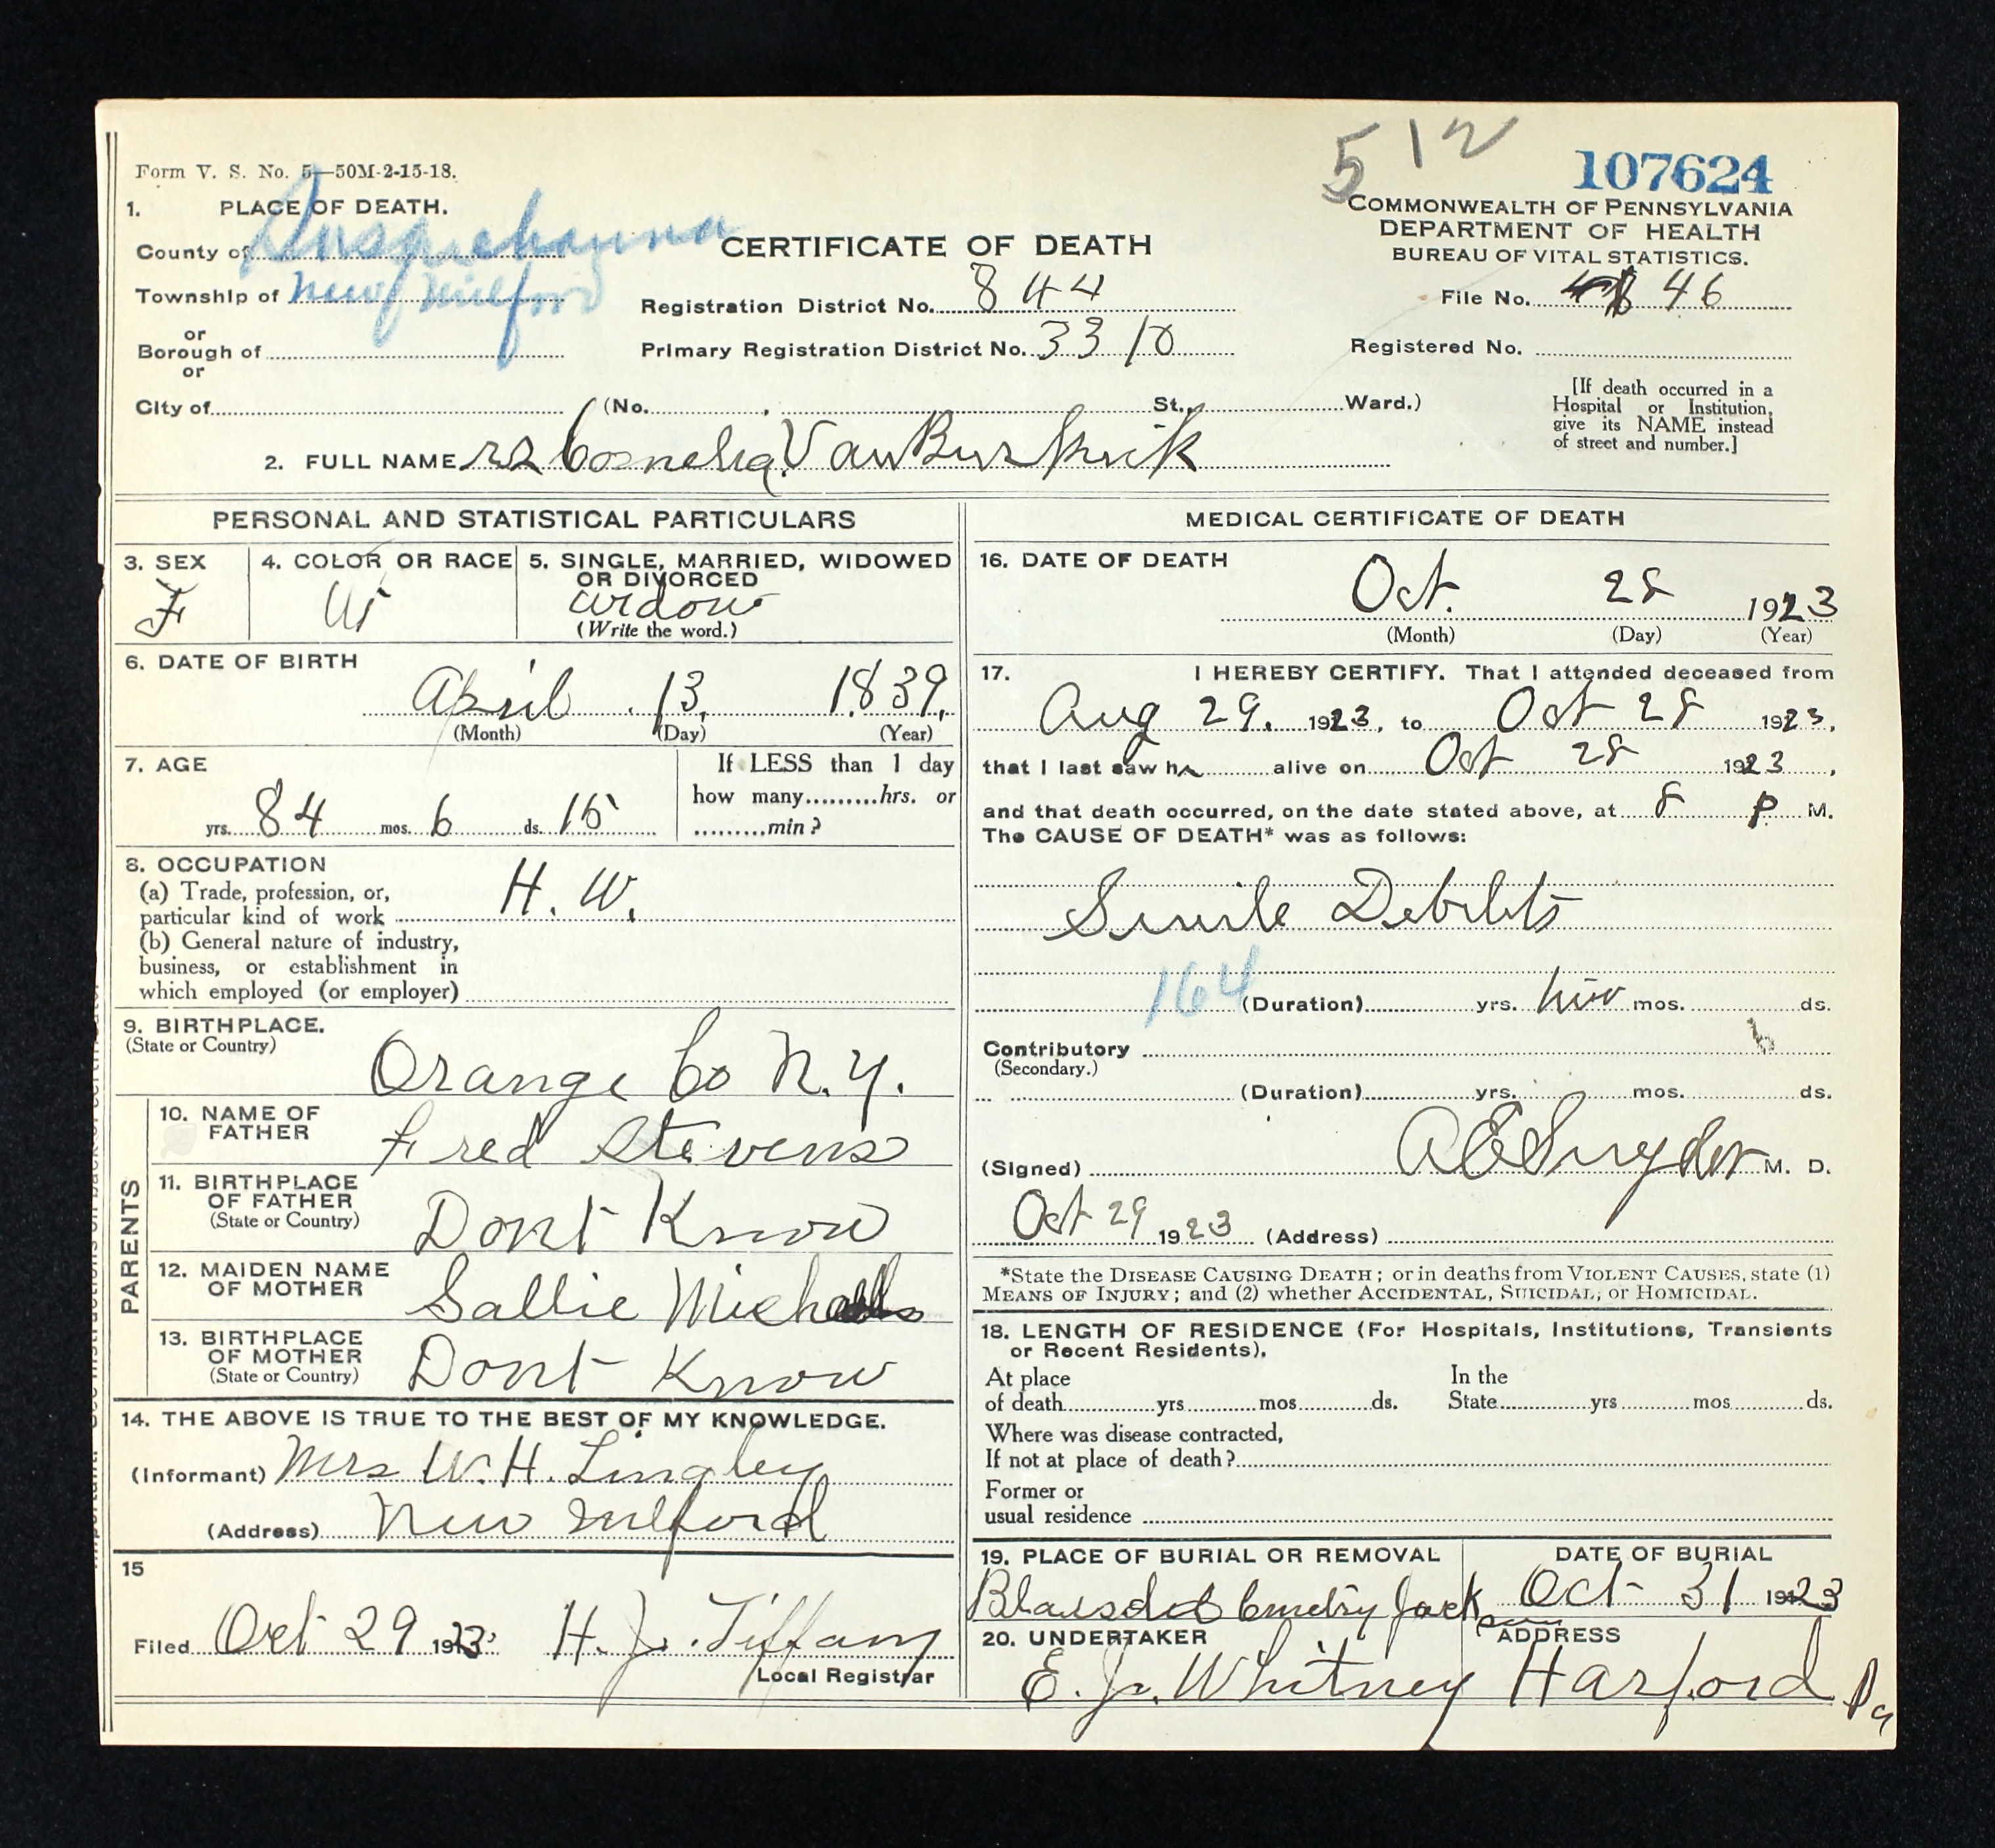 512
107624
Form V. S. No. 5—50M-2-15-18.
COMMONWEALTH OF PENNSYLVANIA
DEPARTMENT OF HEALTH
BUREAU OF VITAL STATISTICS.
CERTIFICATE OF DEATH
1. PLACE OF DEATH.
County of Susquehanna
Township of New Milford
or
Borough of
or
City of (No. , St., Ward.)
Registration District No. 844
Primary Registration District No. 3310
File No. 46
Registered No.
[If death occurred in a
Hospital or Institution,
give its NAME instead
of street and number.]
2. FULL NAME Cornelia VanBuskirk
PERSONAL AND STATISTICAL PARTICULARS
3. SEX F
4. COLOR OR RACE W
5. SINGLE, MARRIED, WIDOWED
OR DIVORCED
widow
(Write the word.)
6. DATE OF BIRTH
April 13, 1839.
(Month) (Day) (Year)
7. AGE
yrs. 84 mos. 6 ds. 15
If LESS than 1 day
how many.........hrs. or
.........min?
8. OCCUPATION
(a) Trade, profession, or,
particular kind of work H. W.
(b) General nature of industry,
business, or establishment in
which employed (or employer)
9. BIRTHPLACE.
(State or Country)
Orange Co N.Y.
PARENTS
10. NAME OF
FATHER
Fred Stevens
11. BIRTHPLACE
OF FATHER
(State or Country)
Dont Know
12. MAIDEN NAME
OF MOTHER
Sallie
13. BIRTHPLACE
OF MOTHER
(State or Country)
Dont Know
14. THE ABOVE IS TRUE TO THE BEST OF MY KNOWLEDGE.
(Informant) Mrs W. H. Lingley
(Address) New Milford
15
Filed Oct 29 1923 H. J. Tiffany
Local Registrar
MEDICAL CERTIFICATE OF DEATH
16. DATE OF DEATH
Oct. 28 1923
(Month) (Day) (Year)
17. I HEREBY CERTIFY. That I attended deceased from
Aug 29, 1923, to Oct 28 1923,
that I last saw h alive on Oct 28 1923,
and that death occurred, on the date stated above, at 8 P M.
The CAUSE OF DEATH* was as follows:
Senile Debility
164
(Duration) yrs. two mos. ds.
Contributory
(Secondary.)
(Duration) yrs. mos. ds.
(Signed) A E Snyder M. D.
Oct 29 1923 (Address)
*State the DISEASE CAUSING DEATH; or in deaths from VIOLENT CAUSES, state (1)
MEANS OF INJURY; and (2) whether ACCIDENTAL, SUICIDAL, or HOMICIDAL.
18. LENGTH OF RESIDENCE (For Hospitals, Institutions, Transients
or Recent Residents).
At place
of death yrs mos ds.
In the
State yrs mos ds.
Where was disease contracted,
If not at place of death?
Former or
usual residence
19. PLACE OF BURIAL OR REMOVAL
DATE OF BURIAL
Oct 31 1923
20. UNDERTAKER
ADDRESS
E. J. Whitney Harford Pa